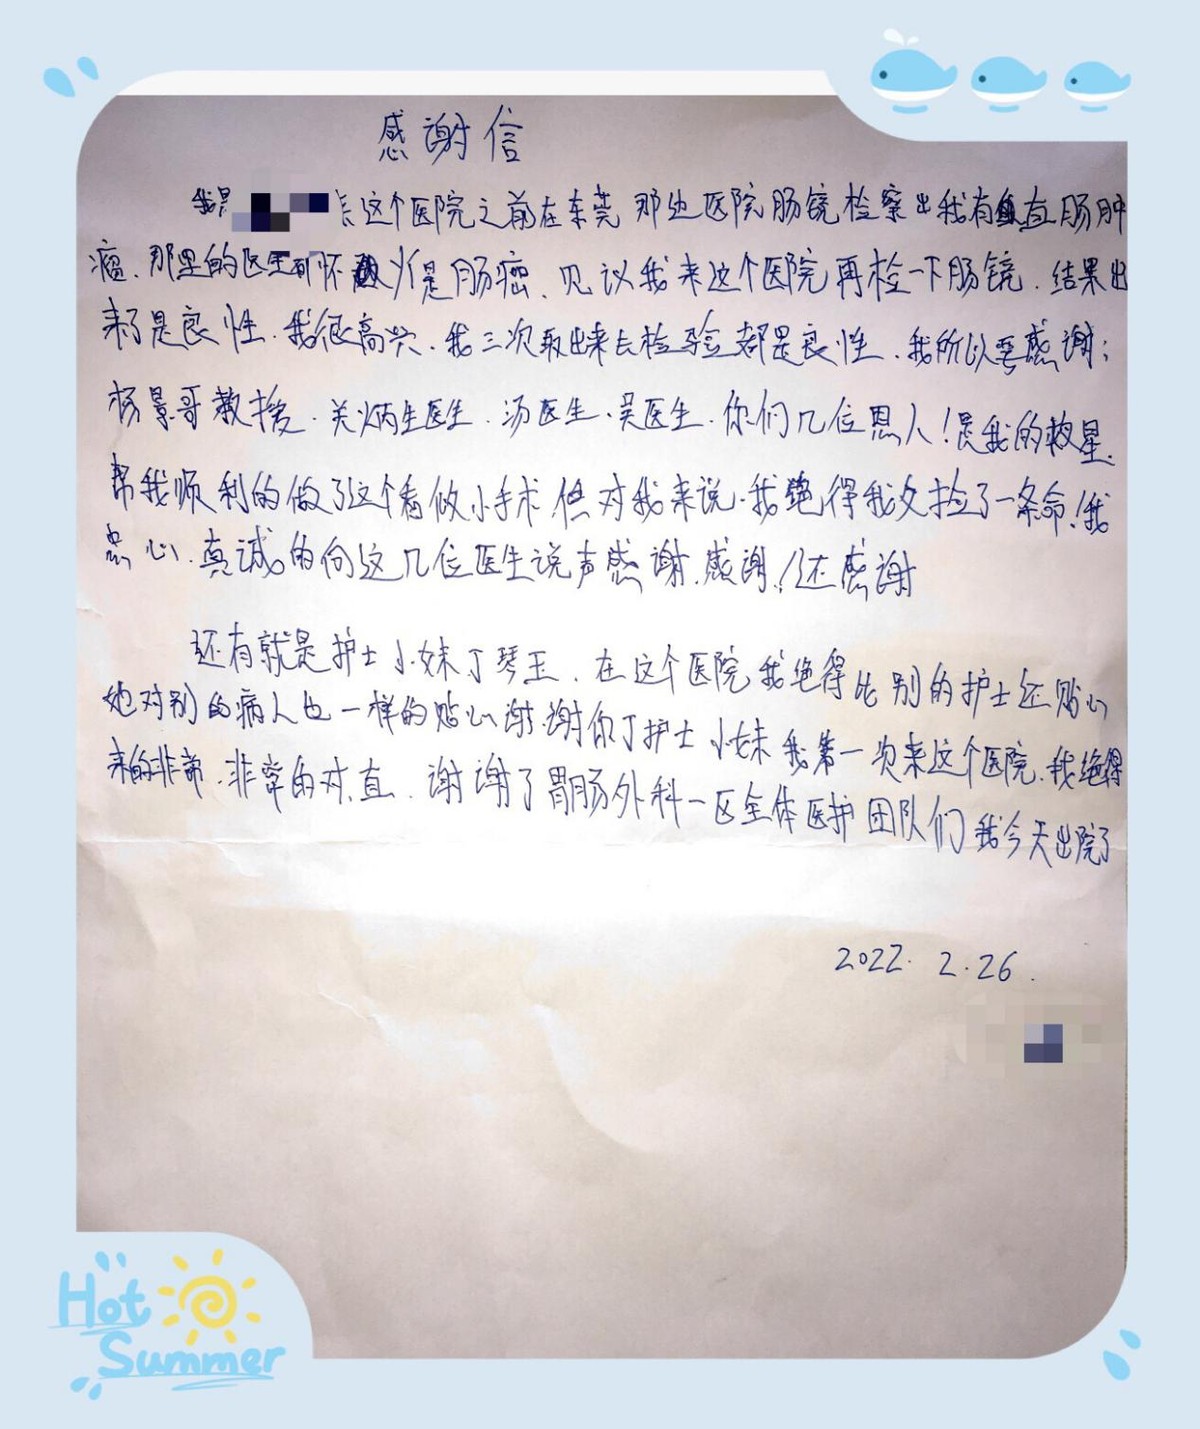 感谢信
我是 这个医院之前在东莞那边医院肠镜检察出我有直肠肿
瘤、那里的医生都怀 是肠癌、见议我来这个医院再检一下肠镜．结果出
来了是良性．我很高兴．我三次取出来去检验都是良性．我所以要感谢：
杨景哥教授．关炳生医生．汤医生．吴医生．你们几位恩人！是我的救星．
帮我顺利的做了这个看似小手术．但对我来说．我绝得我又捡了一条命！我
忠心．真诚的向这几位医生说声感谢．感谢！还感谢
还有就是护士小妹丁琴王．在这个医院我绝得比别的护士还贴心
她对别的病人也一样的贴心谢谢你丁护士小妹我第一次来这个医院．我绝得
来的非常．非常的对．直．谢谢了胃肠外科一区全体医护团队们我今天出院了
2022. 2.26.
Hot
Summer